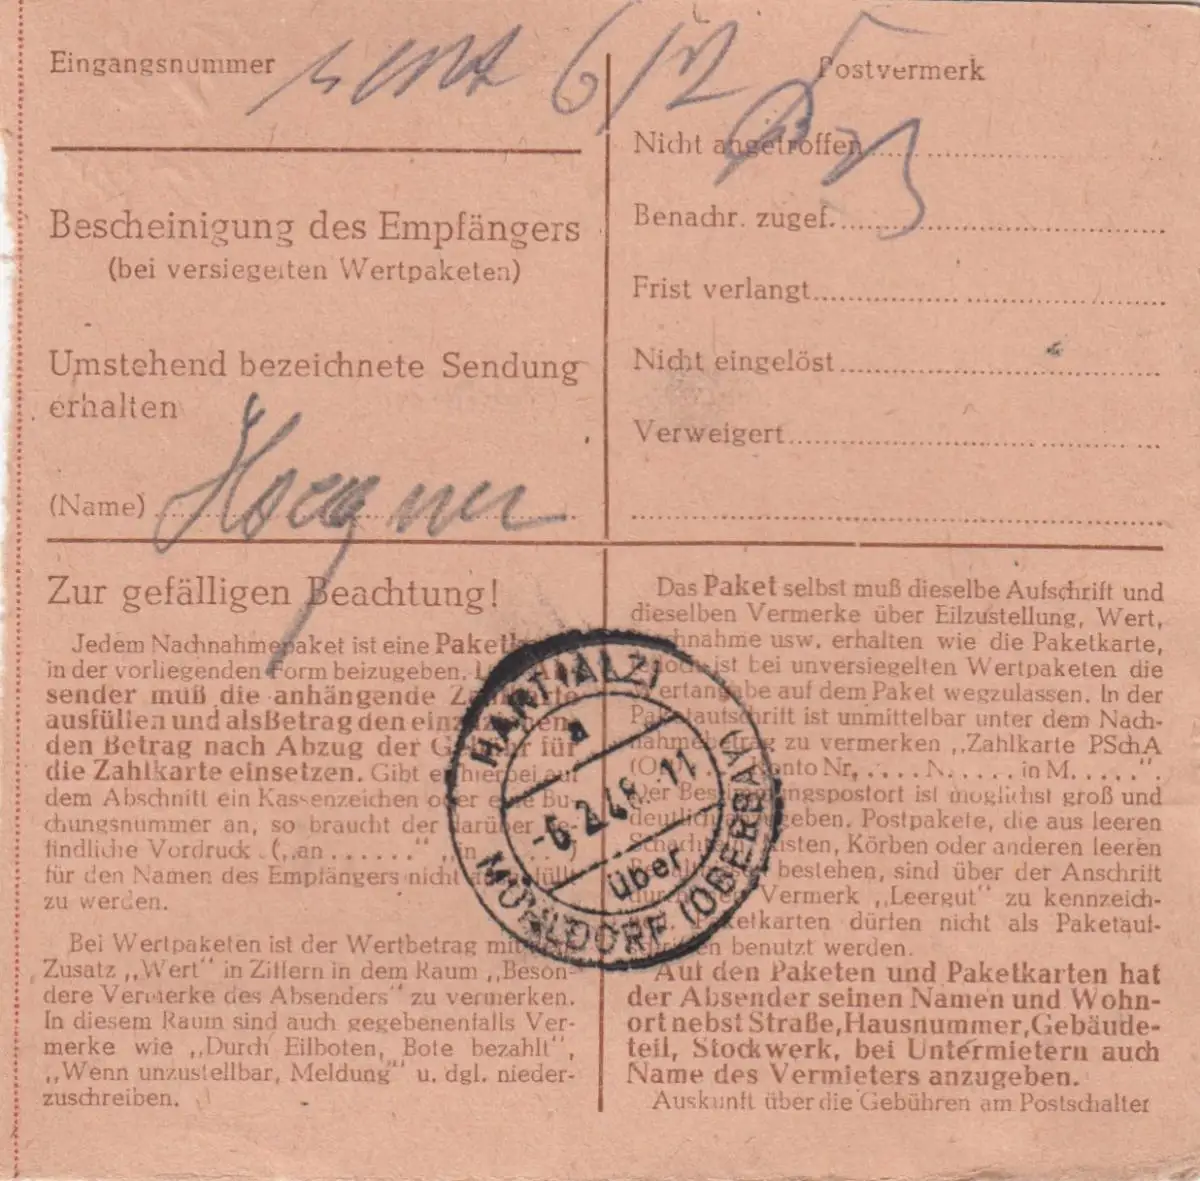 Eingangsnummer
6/2
Bescheinigung des Empfängers
(bei versiegelten Wertpaketen)
Umstehend bezeichnete Sendung
erhalten
(Name)
Postvermerk
Nicht angetroffen
Benachr. zugef.
Frist verlangt
Nicht eingelöst
Verweigert
Zur gefälligen Beachtung!
Jedem Nachnahmepaket ist eine
in der vorliegenden Form beizugeben.
sender muß die anhängende
ausfüllen und als Betrag den
den Betrag nach Abzug der für
die Zahlkarte einsetzen. Gibt er hierbei auf
dem Abschnitt ein Kassenzeichen oder eine Bu-
chungsnummer an, so braucht der darüber be-
findliche Vordruck („an ......“ „in ......“)
für den Namen des Empfängers nicht
zu werden.
Bei Wertpaketen ist der Wertbetrag mit
Zusatz „Wert“ in Ziffern in dem Raum „Beson-
dere Vermerke des Absenders“ zu vermerken.
In diesem Raum sind auch gegebenenfalls Ver-
merke wie „Durch Eilboten, Bote bezahlt“,
„Wenn unzustellbar, Meldung“ u. dgl. nieder-
zuschreiben.
Das Paket selbst muß dieselbe Aufschrift und
dieselben Vermerke über Eilzustellung, Wert,
Nachnahme usw. erhalten wie die Paketkarte,
jedoch ist bei unversiegelten Wertpaketen die
Wertangabe auf dem Paket wegzulassen. In der
Paketaufschrift ist unmittelbar unter dem Nach-
nahmebetrag zu vermerken „Zahlkarte PSchA
Konto Nr. .... N. .... in M. ....“.
Der Bestimmungspostort ist möglichst groß und
deutlich anzugeben. Postpakete, die aus leeren
Schachteln, Kisten, Körben oder anderen leeren
bestehen, sind über der Anschrift
durch den Vermerk „Leergut“ zu kennzeich-
nen. Paketkarten dürfen nicht als Paketauf-
schriften benutzt werden.
Auf den Paketen und Paketkarten hat
der Absender seinen Namen und Wohn-
ort nebst Straße, Hausnummer, Gebäude-
teil, Stockwerk, bei Untermietern auch
Name des Vermieters anzugeben.
Auskunft über die Gebühren am Postschalter
a
-6.2.48.-11
über
MÜHLDORF (OBERBAY)